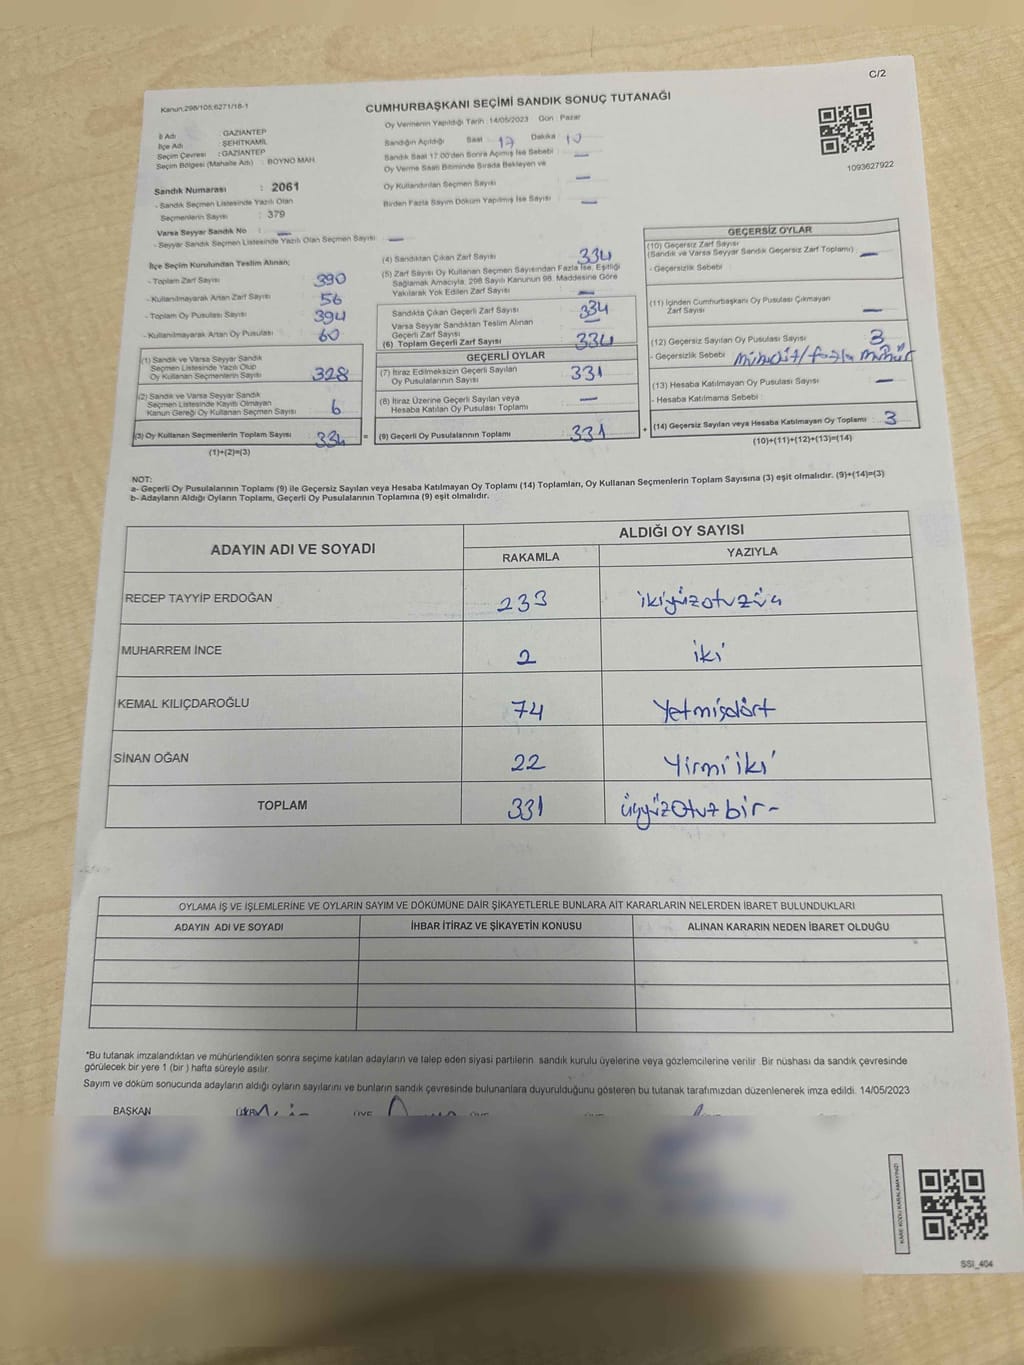 C/2
Kanun:298/105;6271/18-1
CUMHURBAŞKANI SEÇİMİ SANDIK SONUÇ TUTANAĞI
Oy Vermenin Yapıldığı Tarih :14/05/2023 Gün : Pazar
İl Adı : GAZİANTEP
İlçe Adı : ŞEHİTKAMİL
Seçim Çevresi : GAZİANTEP
Seçim Bölgesi (Mahalle Adı) : BOYNO MAH.
Sandığın Açıldığı Saat : 17 Dakika : 10
Sandık Saat 17.00'den Sonra Açılmış İse Sebebi : —
Oy Verme Saati Bitiminde Sırada Bekleyen ve
Oy Kullandırılan Seçmen Sayısı : —
Birden Fazla Sayım Döküm Yapılmış İse Sayısı : —
1093627922
Sandık Numarası : 2061
- Sandık Seçmen Listesinde Yazılı Olan
Seçmenlerin Sayısı : 379
Varsa Seyyar Sandık No : —
- Seyyar Sandık Seçmen Listesinde Yazılı Olan Seçmen Sayısı : —
İlçe Seçim Kurulundan Teslim Alınan;
- Toplam Zarf Sayısı : 390
- Kullanılmayarak Artan Zarf Sayısı : 56
- Toplam Oy Pusulası Sayısı : 394
- Kullanılmayarak Artan Oy Pusulası : 60
(1) Sandık ve Varsa Seyyar Sandık
Seçmen Listesinde Yazılı Olup
Oy Kullanan Seçmenlerin Sayısı : 328
(2) Sandık ve Varsa Seyyar Sandık
Seçmen Listesinde Kayıtlı Olmayan
Kanun Gereği Oy Kullanan Seçmen Sayısı : 6
(3) Oy Kullanan Seçmenlerin Toplam Sayısı : 334 =
(1)+(2)=(3)
(4) Sandıktan Çıkan Zarf Sayısı : 334
(5) Zarf Sayısı Oy Kullanan Seçmen Sayısından Fazla İse, Eşitliği
Sağlamak Amacıyla, 298 Sayılı Kanunun 98. Maddesine Göre
Yakılarak Yok Edilen Zarf Sayısı : —
Sandıkta Çıkan Geçerli Zarf Sayısı : 334
Varsa Seyyar Sandıktan Teslim Alınan
Geçerli Zarf Sayısı : —
(6) Toplam Geçerli Zarf Sayısı : 334
GEÇERLİ OYLAR
(7) İtiraz Edilmeksizin Geçerli Sayılan
Oy Pusulalarının Sayısı : 331
(8) İtiraz Üzerine Geçerli Sayılan veya
Hesaba Katılan Oy Pusulası Toplamı : —
(9) Geçerli Oy Pusulalarının Toplamı : 331 +
GEÇERSİZ OYLAR
(10) Geçersiz Zarf Sayısı
(Sandık ve Varsa Seyyar Sandık Geçersiz Zarf Toplamı) : —
- Geçersizlik Sebebi :
(11) İçinden Cumhurbaşkanı Oy Pusulası Çıkmayan
Zarf Sayısı : —
(12) Geçersiz Sayılan Oy Pusulası Sayısı : 3
- Geçersizlik Sebebi : / fazla mühür
(13) Hesaba Katılmayan Oy Pusulası Sayısı : —
- Hesaba Katılmama Sebebi :
(14) Geçersiz Sayılan veya Hesaba Katılmayan Oy Toplamı : 3
(10)+(11)+(12)+(13)=(14)
NOT:
a- Geçerli Oy Pusulalarının Toplamı (9) ile Geçersiz Sayılan veya Hesaba Katılmayan Oy Toplamı (14) Toplamları, Oy Kullanan Seçmenlerin Toplam Sayısına (3) eşit olmalıdır. (9)+(14)=(3)
b- Adayların Aldığı Oyların Toplamı, Geçerli Oy Pusulalarının Toplamına (9) eşit olmalıdır.
ADAYIN ADI VE SOYADI
ALDIĞI OY SAYISI
RAKAMLA YAZIYLA
RECEP TAYYİP ERDOĞAN 233 ikiyüzotuzüç
MUHARREM İNCE 2 iki
KEMAL KILIÇDAROĞLU 74 Yetmişdört
SİNAN OĞAN 22 Yirmi iki
TOPLAM 331 üçyüzotuz bir -
OYLAMA İŞ VE İŞLEMLERİNE VE OYLARIN SAYIM VE DÖKÜMÜNE DAİR ŞİKAYETLERLE BUNLARA AİT KARARLARIN NELERDEN İBARET BULUNDUKLARI
ADAYIN ADI VE SOYADI İHBAR İTİRAZ VE ŞİKAYETİN KONUSU ALINAN KARARIN NEDEN İBARET OLDUĞU
*Bu tutanak imzalandıktan ve mühürlendikten sonra seçime katılan adayların ve talep eden siyasi partilerin sandık kurulu üyelerine veya gözlemcilerine verilir. Bir nüshası da sandık çevresinde
görülecek bir yere 1 (bir) hafta süreyle asılır.
Sayım ve döküm sonucunda adayların aldığı oyların sayılarını ve bunların sandık çevresinde bulunanlara duyurulduğunu gösteren bu tutanak tarafımızdan düzenlenerek imza edildi. 14/05/2023
BAŞKAN ÜYE
KARE KODU KARALAMAYINIZ!
SSİ_404